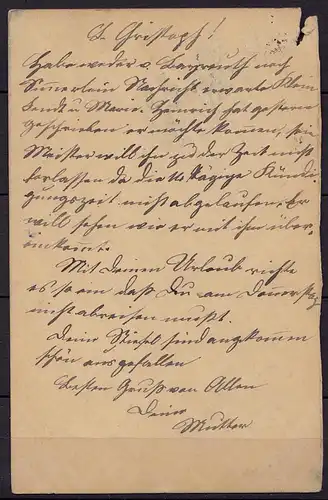 L. Christoph!
Habe weder v. Bayreuth noch
Nachricht erwarte Klein
u. Marie. Heinrich hat gestern
geschrieben er möchte kommen, sein
Meister will ihn zu der Zeit nicht
fortlassen da die 14 tägige Kündi
gungszeit nicht abgelaufen. Er
will sehen wie er mit ihm über-
einkommt.
Mit deinen Urlaub richte
es so ein daß Du am Donnerstag
nicht abreisen mußt.
Deine Stiefel sind angekommen
schön ausgefallen
Besten Gruß von Allen
Deine
Mutter